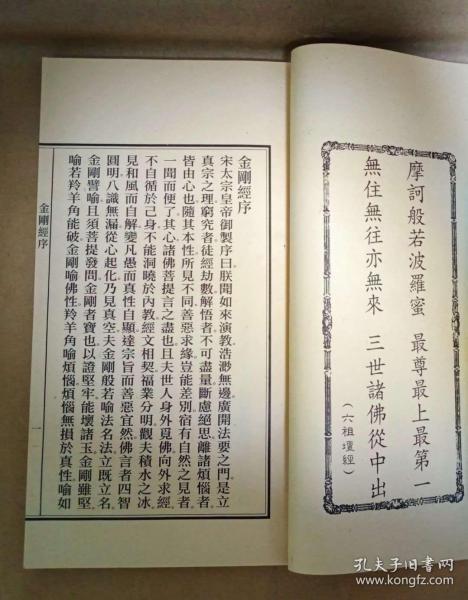 摩訶般若波羅蜜 最尊最上最第一
無住無往亦無來 三世諸佛從中出
(六祖壇經)
金剛經序
宋太宗皇帝御製序曰朕聞如來演教浩渺無邊廣開法要之門是立
真宗之理窮究者徒經劫數解悟者不可盡量斷慮絕思離諸煩惱者
皆由心也隨其本性所見不同善惡求緣豈能差別宿有自然之見者
一聞而便了其心諸佛菩提言之盡也且夫世人身外覓佛向外求經
不自循於己身不能洞曉於內教經文相契福業分明觀夫積水之冰
見和風而自解變凡愚而真性自顯達宗旨而善惡宜然佛言者四智
圓明八識無漏從心起化乃見真空夫金剛般若喻法名法立既立名
金剛譬喻且須菩提發問金剛者寶也以證堅牢能壞諸玉金剛雖堅
喻若羚羊角能破金剛喻佛性羚羊角喻煩惱煩惱無損於真性喻如
金剛經序
一
孔夫子旧书网
www.kongfz.com